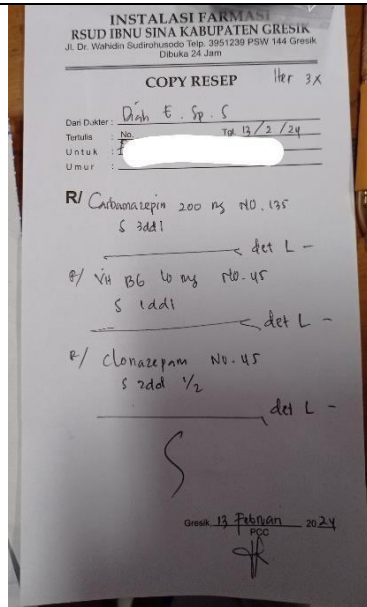 INSTALASI FARMASI
RSUD IBNU SINA KABUPATEN GRESIK
Jl. Dr. Wahidin Sudirohusodo Telp. 3951239 PSW 144 Gresik
Dibuka 24 Jam
COPY RESEP Iter 3x
Dari Dokter : Diah E. Sp. S
Tertulis : No. Tgl. 13/2/24
Untuk :
Umur :
R/ Carbamazepin 200 mg NO. 135
S 3dd1
det L -
R/ Vit B6 10 mg No. 45
S 1dd1
det L -
R/ Clonazepam No. 45
S 2dd 1/2
det L -
Gresik, 13 Februari 2024
PCC